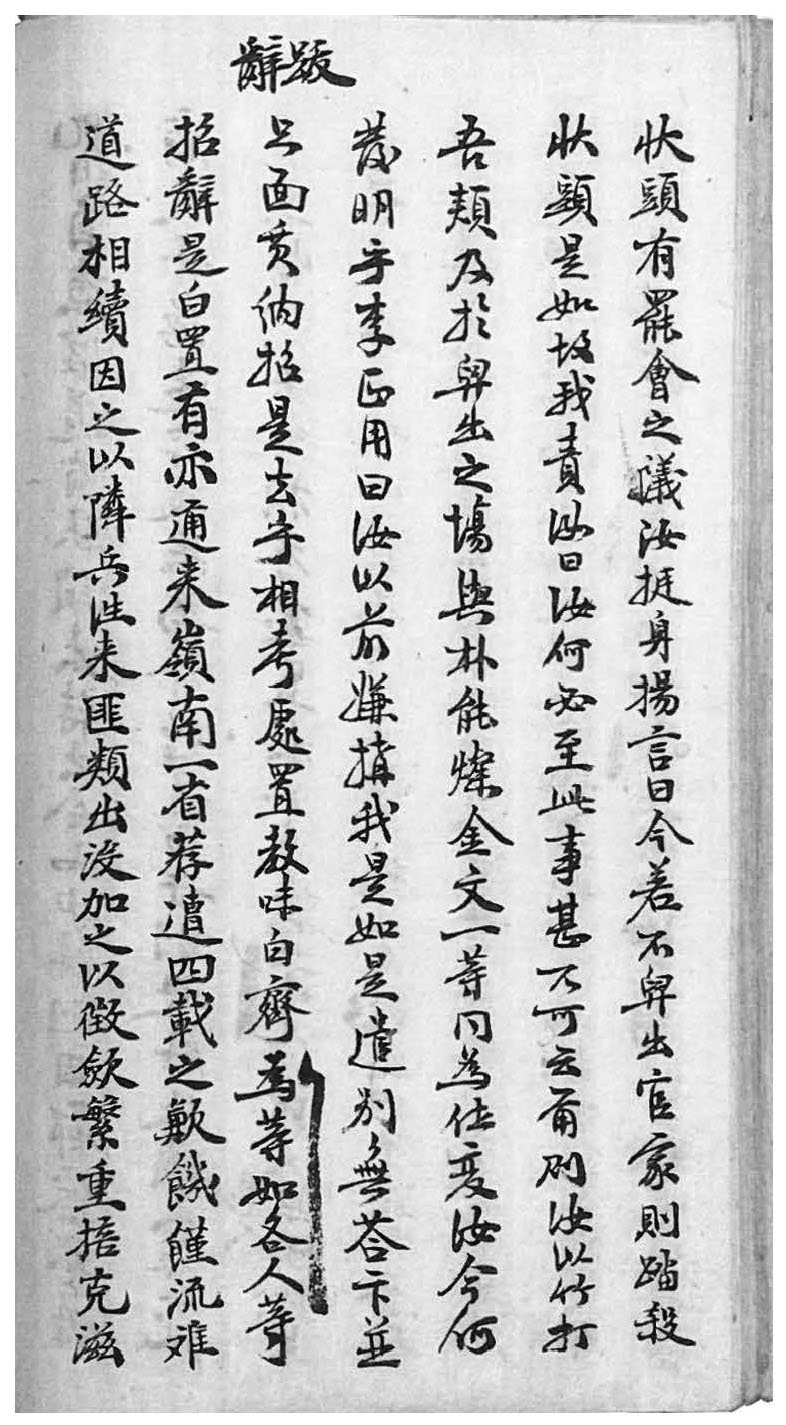 跋辭
狀頭有罷會之議汝挺身揚言曰今若不舁出官家則踏殺
狀頭是如故我責汝曰汝何必至此事甚不可云爾則汝以竹打
吾頬及於舁出之場與朴能燦金文一等同爲作変汝今何
發明乎李正用曰汝以前嫌搆我是如是遣別無答卞並
只面質納招是去乎相考處置敎味白齊 爲等如各人等
招辭是白置有亦邇来嶺南一省荐遭四載之歉饑饉流难
道路相續因之以隣兵徃来匪類出没加之以徴斂繁重掊克滋